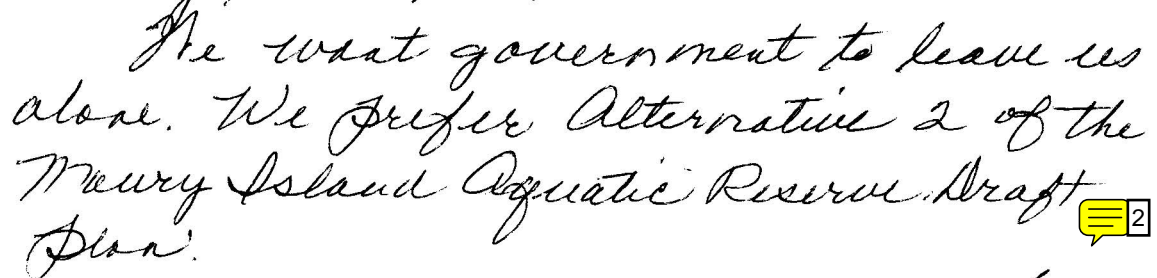 We want government to leave us
alone. We prefer Alternative 2 of the
Maury Island Aquatic Reserve Draft
plan.
2